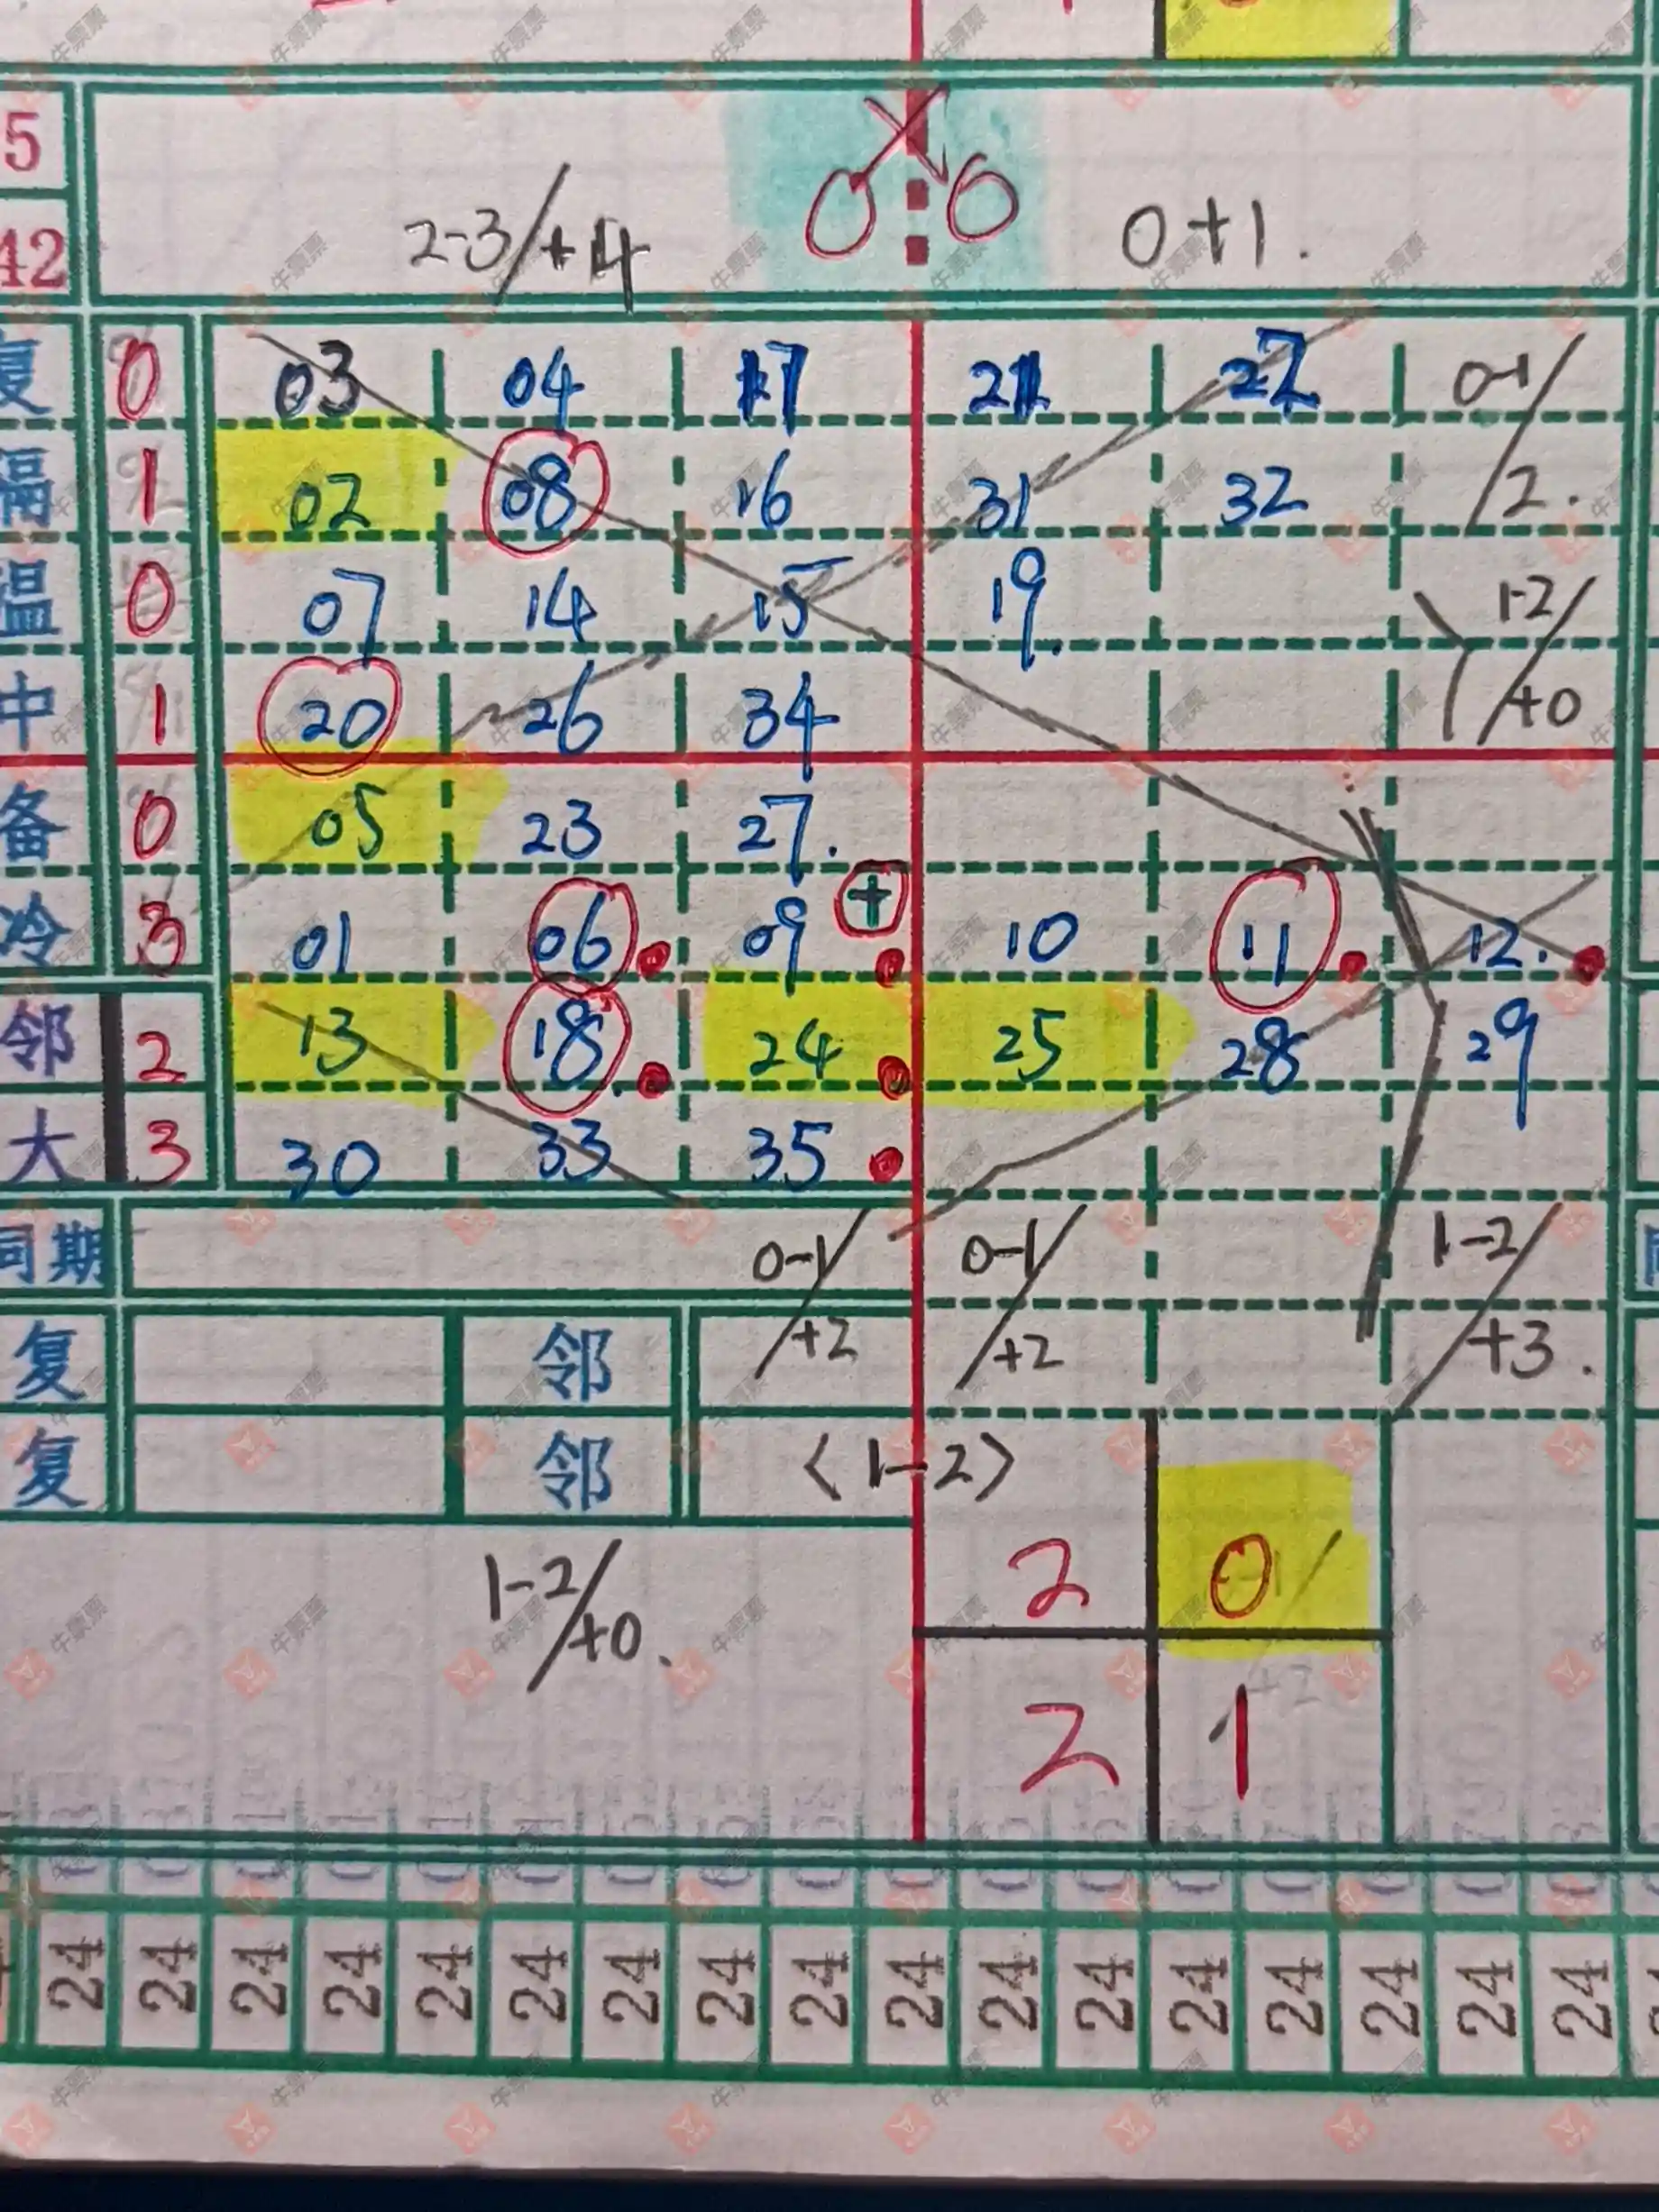 5
42
2-3/+4
0+1.
复 0 03 04 17 21 22 0-1/
隔 1 02 08 16 31 32 2.
温 0 07 14 15 19. 1-2/
中 1 20 26 34 +0
备 0 05 23 27.
冷 3 01 06 09 + 10 11 12.
邻 2 13 18. 24 25 28 29
大 3 30 33 35
同期 0-1/ 0-1/ 1-2/
复 邻 /+2 /+2 +3.
复 邻 〈1-2〉
1-2/+0. 2 0
2 1
24 24 24 24 24 24 24 24 24 24 24 24 24 24 24 24 24
牛票票